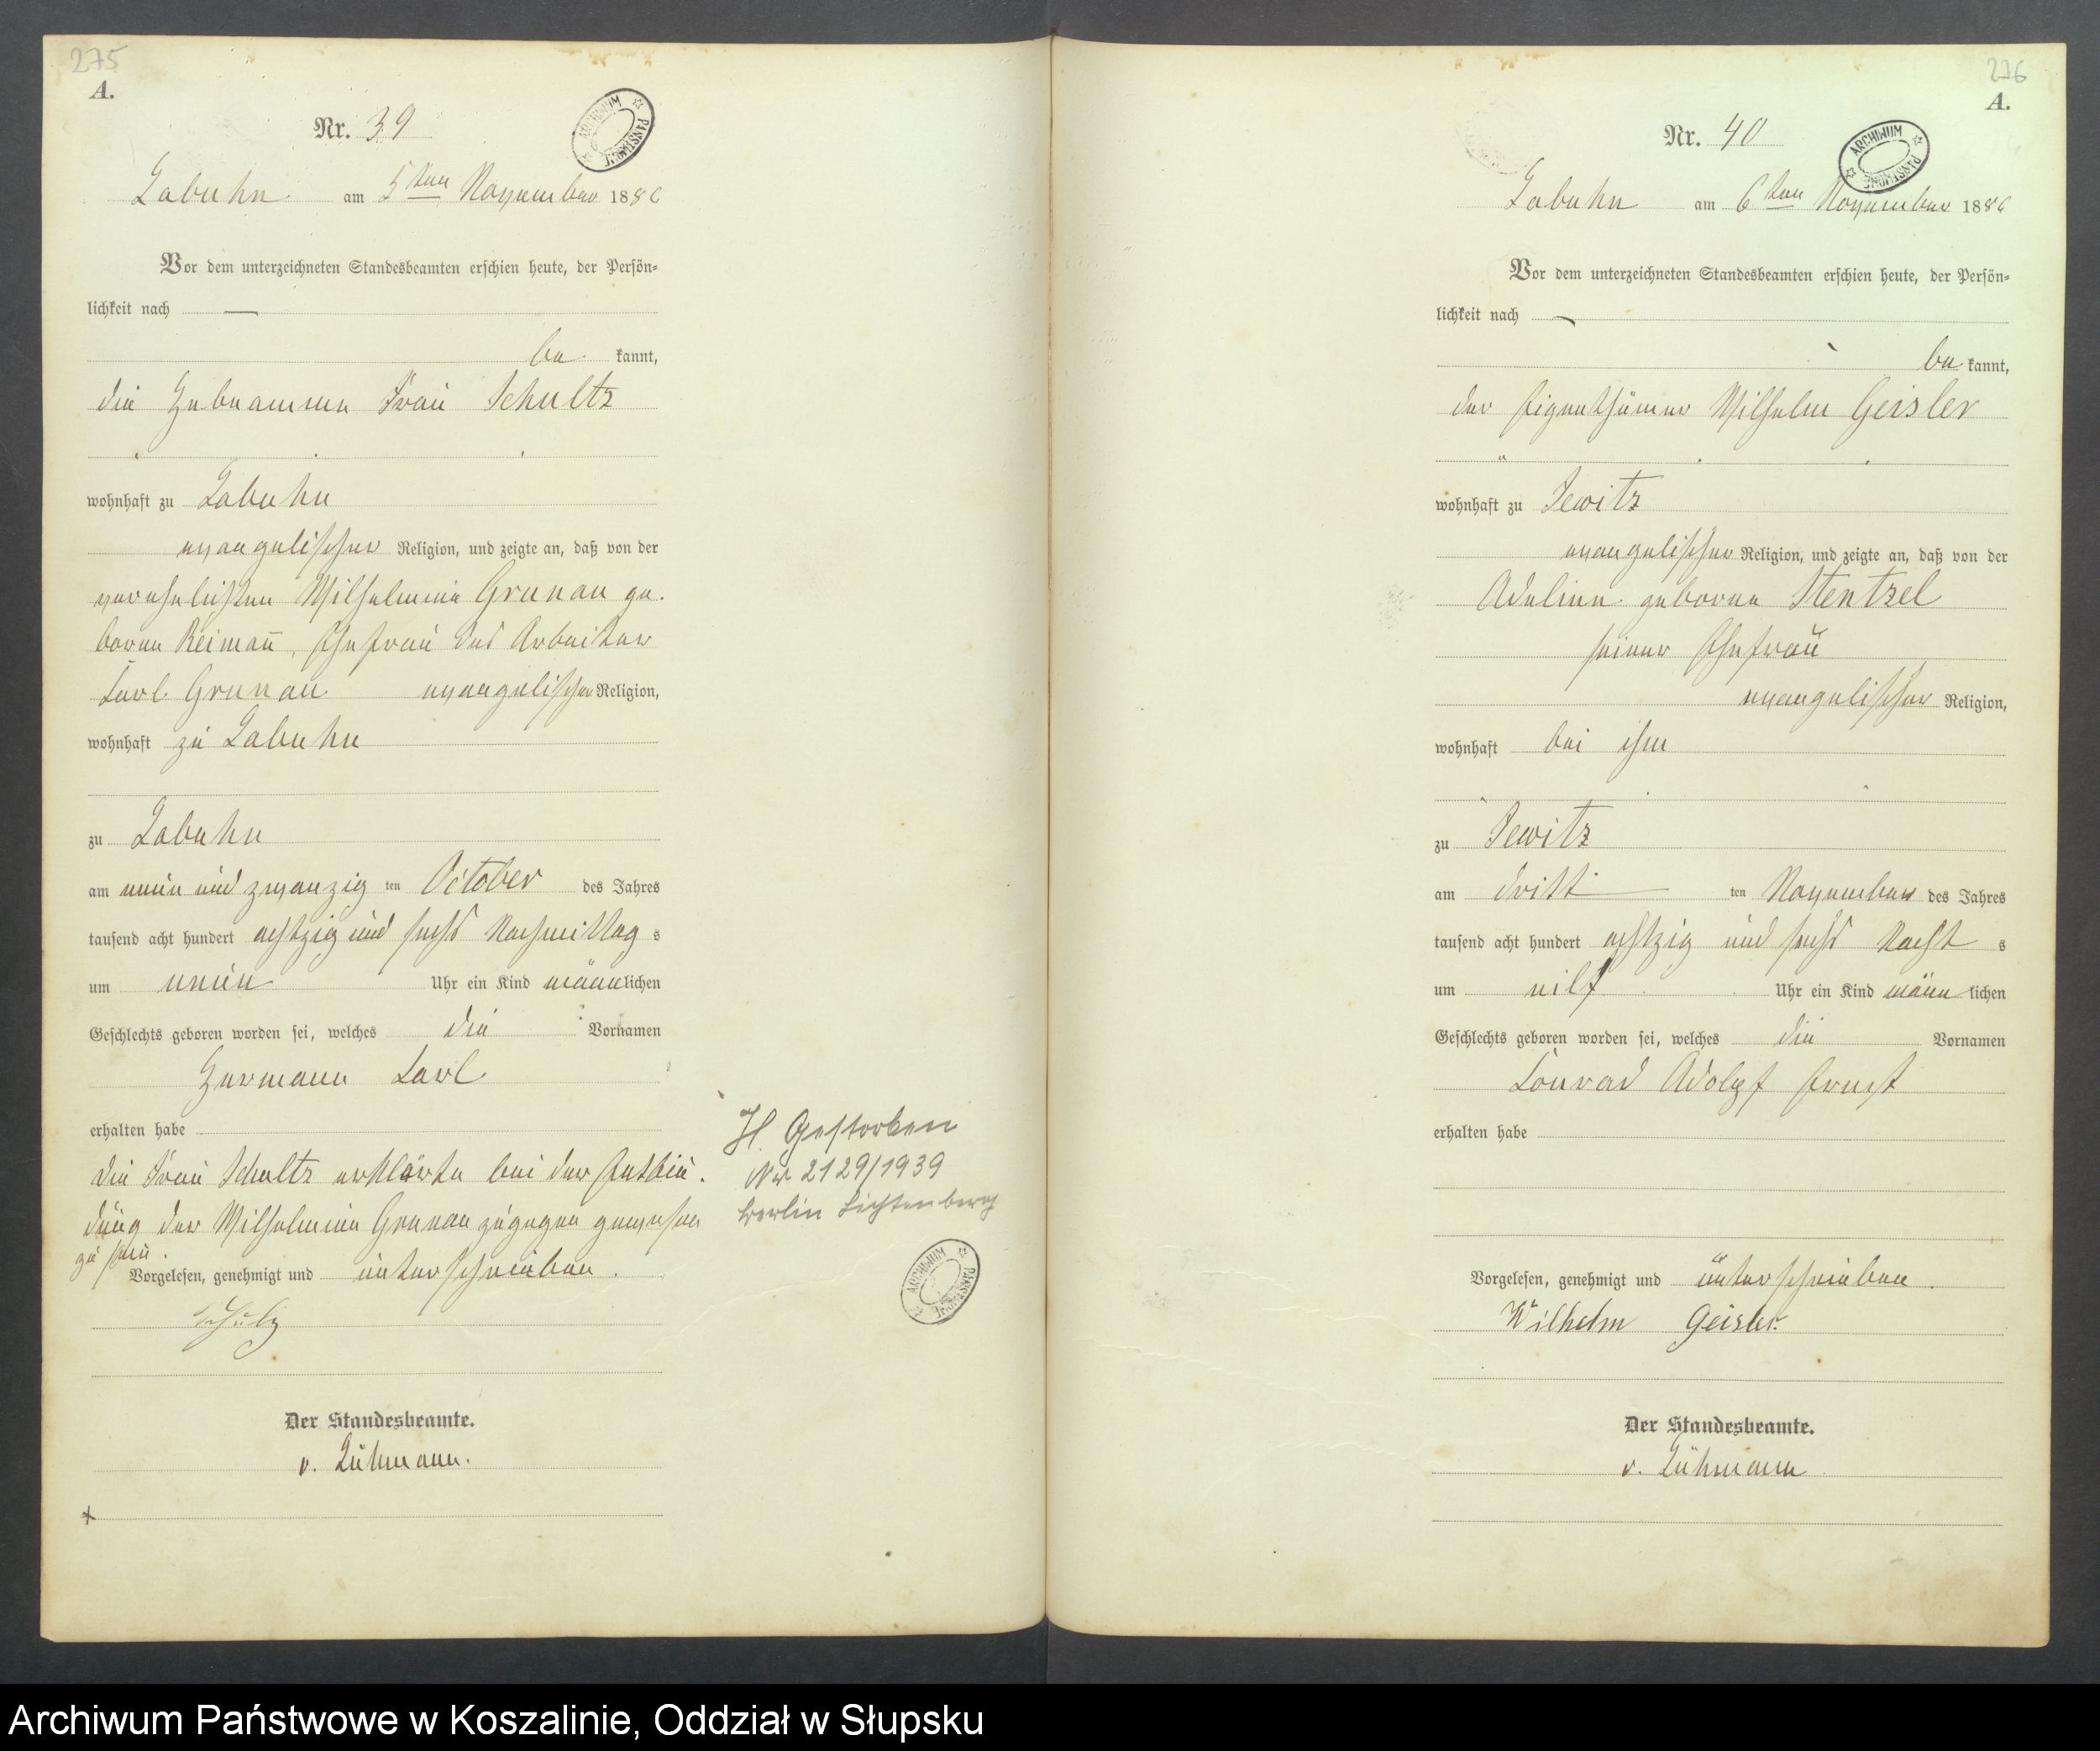 275
A.
Nr. 39
ARCHIWUM PAŃSTWOWE
Labuhn am 5ten November 1886
Vor dem unterzeichneten Standesbeamten erschien heute, der Persön-
lichkeit nach —
be kannt,
die Hebeamme Frau Schultz
wohnhaft zu Labuhn
evangelischer Religion, und zeigte an, daß von der
verehelichten Wilhelmine Grunau ge-
borne Reimann, Ehefrau des Arbeiter
Carl Grunau evangelischer Religion,
wohnhaft zu Labuhn
zu Labuhn
am neun und zwanzig ten October des Jahres
tausend acht hundert achtzig und sechs Nachmittag s
um neun Uhr ein Kind männlichen
Geschlechts geboren worden sei, welches die Vornamen
Hermann Carl
erhalten habe
die Frau Schultz erklärte bei der Entbin-
dung der Wilhelmine Grunau zugegen gewesen
zu sein.
Vorgelesen, genehmigt und unterschrieben.
Schulz
Der Standesbeamte.
v. Lühmann.
H. Gestorben
Nr 2129/1939
Berlin Lichtenberg
ARCHIWUM PAŃSTWOWE
276
A.
Nr. 40
ARCHIWUM PAŃSTWOWE
Labuhn am 6ten November 1886
Vor dem unterzeichneten Standesbeamten erschien heute, der Persön-
lichkeit nach —
be kannt,
der Eigenthümer Wilhelm Geisler
wohnhaft zu Jewitz
evangelischer Religion, und zeigte an, daß von der
Adeline geborne Stentzel
seiner Ehefrau
evangelischer Religion,
wohnhaft bei ihm
zu Jewitz
am dritt ten November des Jahres
tausend acht hundert achtzig und sechs Nacht s
um eilf Uhr ein Kind männ lichen
Geschlechts geboren worden sei, welches die Vornamen
Conrad Adolpf Ernst
erhalten habe
Vorgelesen, genehmigt und unterschrieben.
Wilhelm Geisler
Der Standesbeamte.
v. Lühmann
Archiwum Państwowe w Koszalinie, Oddział w Słupsku